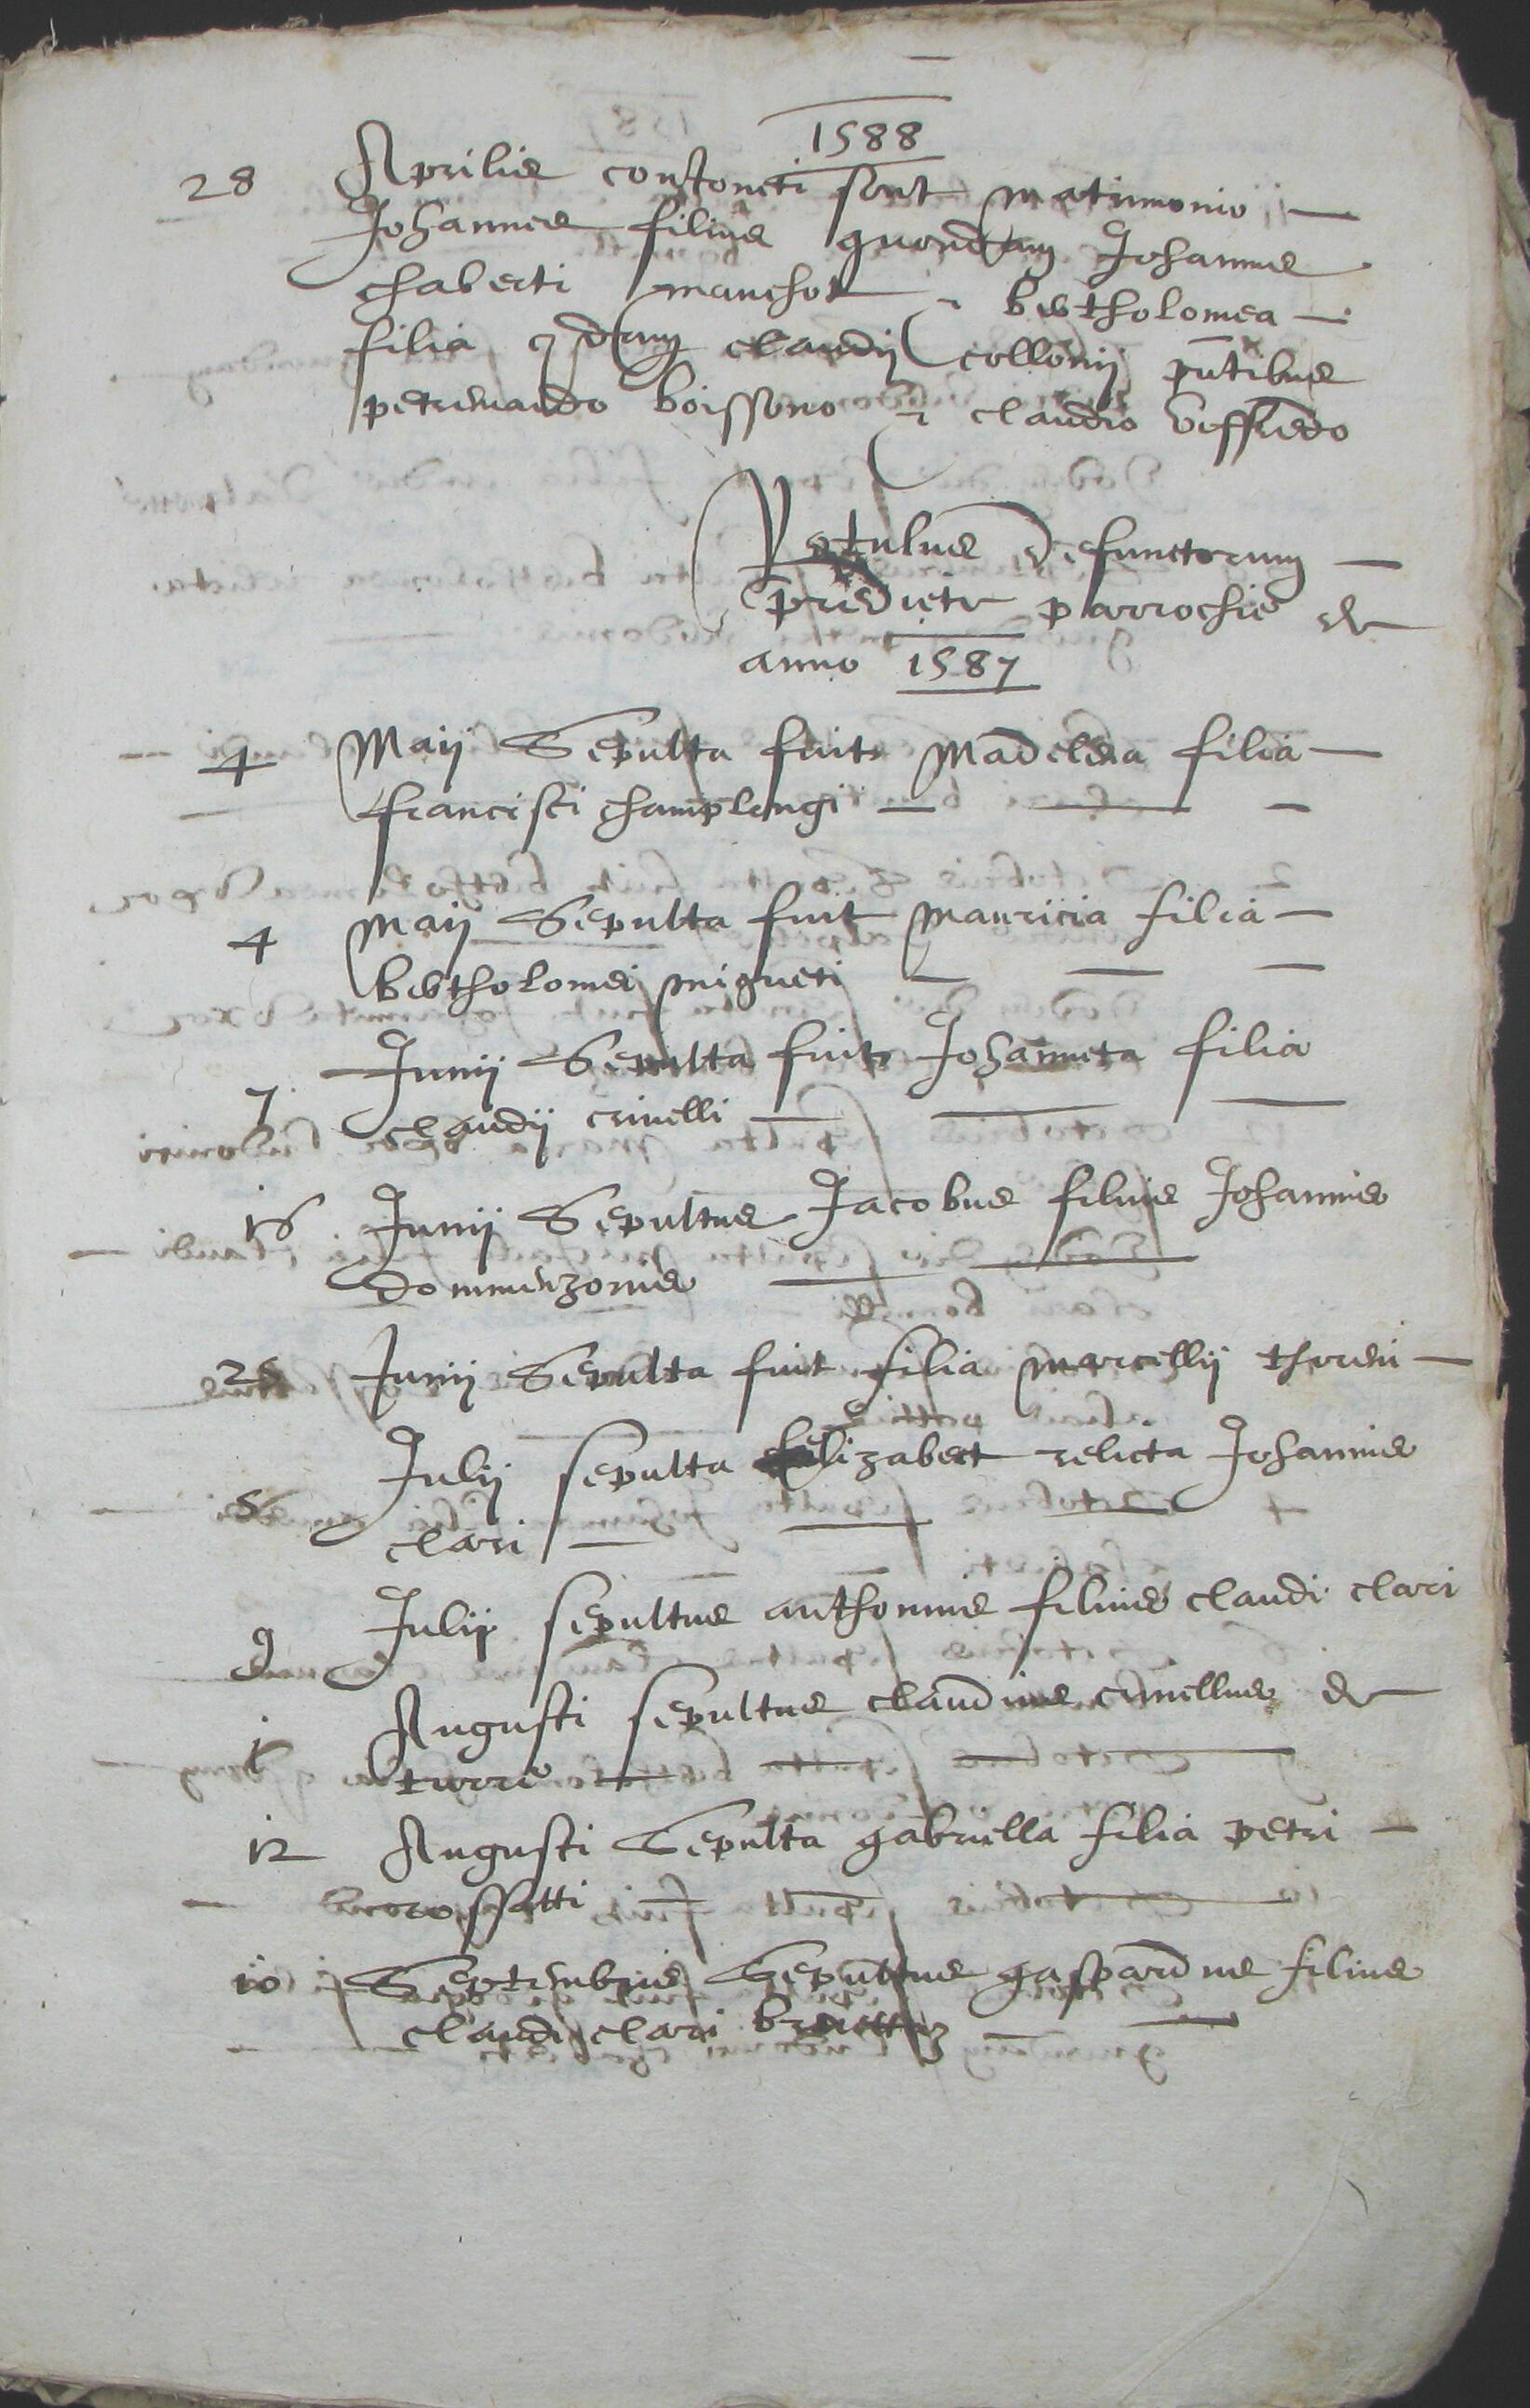 1588
28 Aprilis conioncti sont matrimonio
Johannes filius quondam Johannis
chaberti manchot & bertholomea
filia qdam claudij collonij pntibus
petremando boissono & claudio veffredo
Rotulus defunctorum
predicte parrochie de
anno 1587
4 Maij Sepulta fuit Madelena filia
francisci champlongi
4 Maij Sepulta fuit Mauricia filia
bertholomei migueti
7 Junij Sepulta fuit Johanneta filia
claudij crinelli
16 Junij Sepultus Jacobus filius Johannis
dommenzonis
Junij Sepulta fuit filia marcellij
5 Julij sepulta elizabert relicta Johannis
clari
9 Julij sepultus anthonius filius claudi clari
1 Augusti sepultus claudius crinellus de
turre
12 Augusti Sepulta gabriella filia petri
10 Septembris Sepultus gaspardus filius
claudi clari